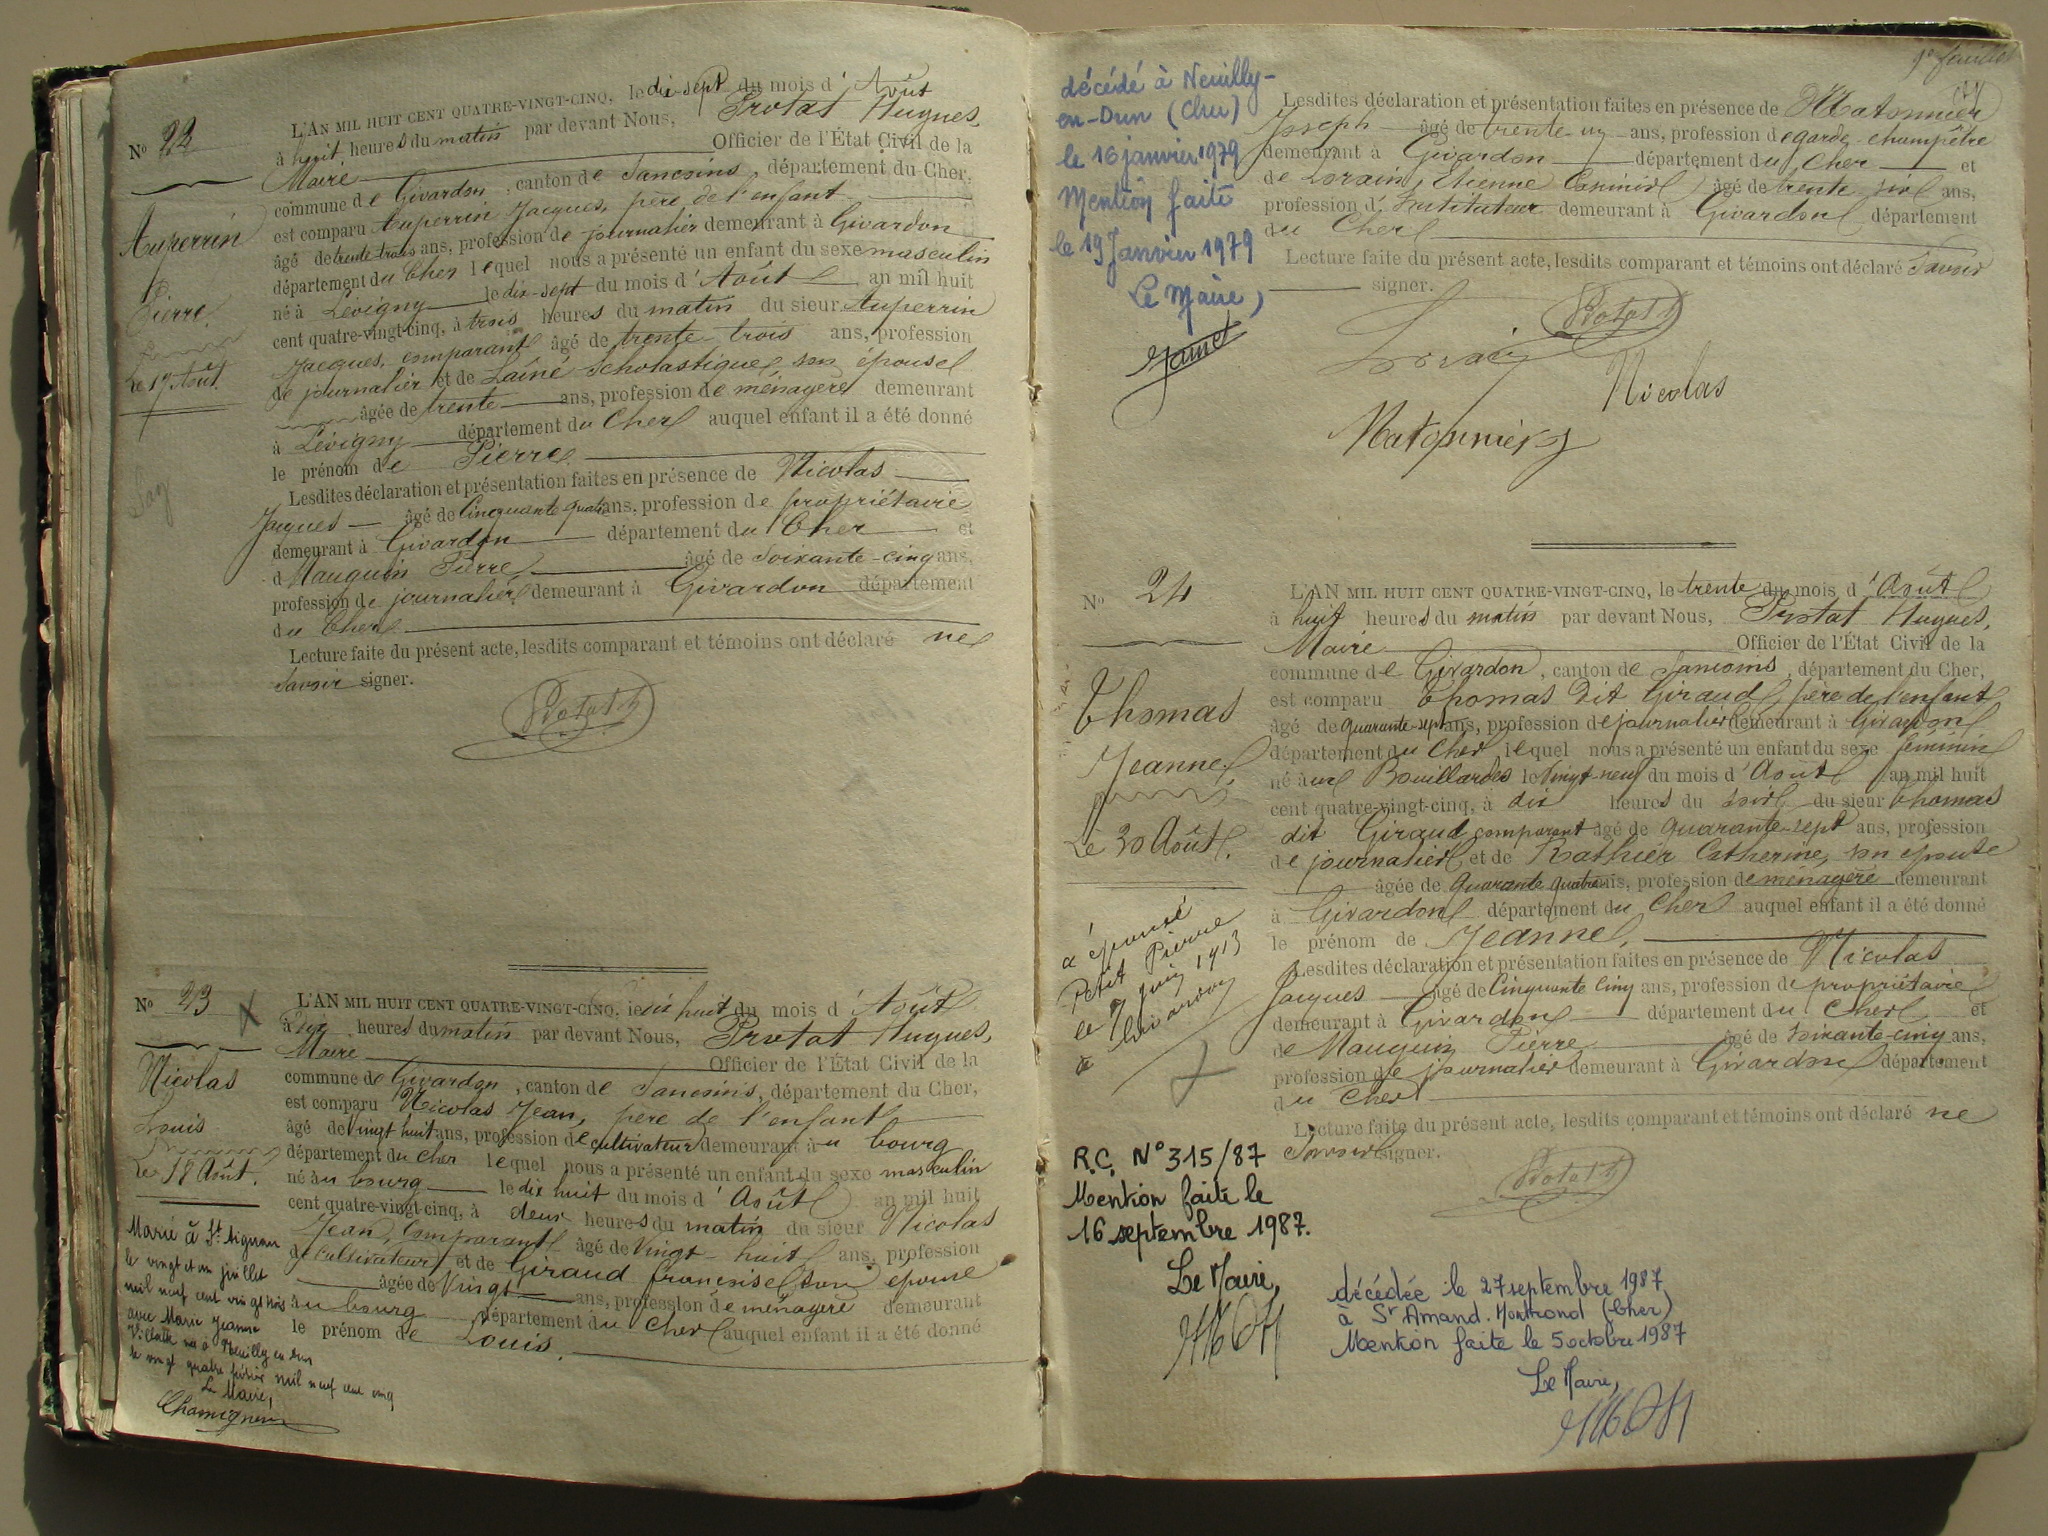 No 22
Auperrin
Pierre
Le 17 Août.
L'AN MIL HUIT CENT QUATRE-VINGT-CINQ, le dix-sept du mois d'Août
à huit heures du matin par devant Nous, Protat Hugues,
Maire Officier de l'État Civil de la
commune de Givardon, canton de Sancoins, département du Cher,
est comparu Auperrin Jacques, père de l'enfant
âgé de trente trois ans, profession de journalier demeurant à Givardon
département du Cher lequel nous a présenté un enfant du sexe masculin
né à Lévigny le dix-sept du mois d'Août an mil huit
cent quatre-vingt-cinq, à trois heures du matin du sieur Auperrin
Jacques, comparant âgé de trente trois ans, profession
de journalier et de Lainé Scholastique, son épouse
âgée de trente ans, profession de ménagère demeurant
à Lévigny département du Cher auquel enfant il a été donné
le prénom de Pierre.
Lesdites déclaration et présentation faites en présence de Nicolas
Jacques âgé de Cinquante quatre ans, profession de propriétaire
demeurant à Givardon département du Cher et
d Mauguin Pierre âgé de Soixante-cinq ans,
profession de journalier demeurant à Givardon département
du Cher
Lecture faite du présent acte, lesdits comparant et témoins ont déclaré ne
Savoir signer.
Protat h
No 23
Nicolas
Louis
Le 18 Août.
Marié à St Aignan
le vingt et un juillet
mil neuf cent vingt trois
avec Marie Jeanne
née à Neuilly en Dun
le vingt quatre février mil neuf cent cinq
Le Maire,
L'AN MIL HUIT CENT QUATRE-VINGT-CINQ, le dix huit du mois d'Août
à heures du matin par devant Nous, Protat Hugues,
Maire Officier de l'État Civil de la
commune de Givardon, canton de Sancoins, département du Cher,
est comparu Nicolas Jean, père de l'enfant
âgé de Vingt huit ans, profession de cultivateur demeurant au bourg
département du Cher lequel nous a présenté un enfant du sexe masculin
né au bourg le dix huit du mois d'Août an mil huit
cent quatre-vingt-cinq, à deux heures du matin du sieur Nicolas
Jean, Comparant âgé de Vingt-huit ans, profession
de cultivateur et de Giraud françoise son épouse
âgée de Vingt ans, profession de ménagère demeurant
au bourg département du Cher auquel enfant il a été donné
le prénom de Louis.
décédé à Neuilly-
en-Dun (Cher)
le 16 janvier 1979
Mention faite
le 19 Janvier 1979
Le Maire,
Jamet
feuillet
Lesdites déclaration et présentation faites en présence de Matonnier
Joseph âgé de trente un ans, profession de garde-champêtre
demeurant à Givardon département du Cher et
de Lorain, Etienne Casimir âgé de trente six ans,
profession d'Instituteur demeurant à Givardon département
du Cher
Lecture faite du présent acte, lesdits comparant et témoins ont déclaré Savoir
signer.
Protat h
Lorain
Nicolas
Matonnier J
No 24
Thomas
Jeanne
Le 30 Août.
a épousé
Petit Pierre
le 7 juin 1913
à Givardon
L'AN MIL HUIT CENT QUATRE-VINGT-CINQ, le trente du mois d'Août
à huit heures du matin par devant Nous, Protat Hugues,
Maire Officier de l'État Civil de la
commune de Givardon, canton de Sancoins, département du Cher,
est comparu Thomas dit Giraud, père de l'enfant
âgé de quarante-sept ans, profession de journalier demeurant à Givardon
département du Cher lequel nous a présenté un enfant du sexe féminin
né aux Bouillardes le Vingt-neuf du mois d'Août an mil huit
cent quatre-vingt-cinq, à dix heures du soir du sieur Thomas
dit Giraud comparant âgé de quarante-sept ans, profession
de journalier et de Rathier Catherine, son épouse
âgée de quarante quatre ans, profession de ménagère demeurant
à Givardon département du Cher auquel enfant il a été donné
le prénom de Jeanne.
Lesdites déclaration et présentation faites en présence de Nicolas
Jacques âgé de Cinquante Cinq ans, profession de propriétaire
demeurant à Givardon département du Cher et
de Mauguin Pierre âgé de Soixante-cinq ans,
profession de journalier demeurant à Givardon département
du Cher
Lecture faite du présent acte, lesdits comparant et témoins ont déclaré ne
Savoir signer.
Protat h
R.C. N° 315/87
Mention faite le
16 septembre 1987.
Le Maire,
décédée le 27 septembre 1987
à St Amand-Montrond (Cher)
Mention faite le 5 octobre 1987
Le Maire,